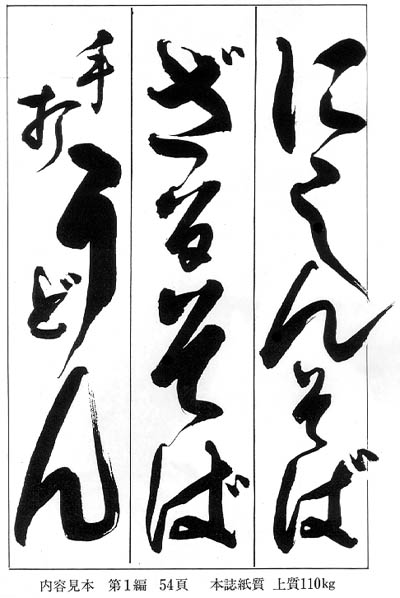 にしんそば
ざるそば
手打うどん
内容見本 第1編 54頁 本誌紙質 上質110kg